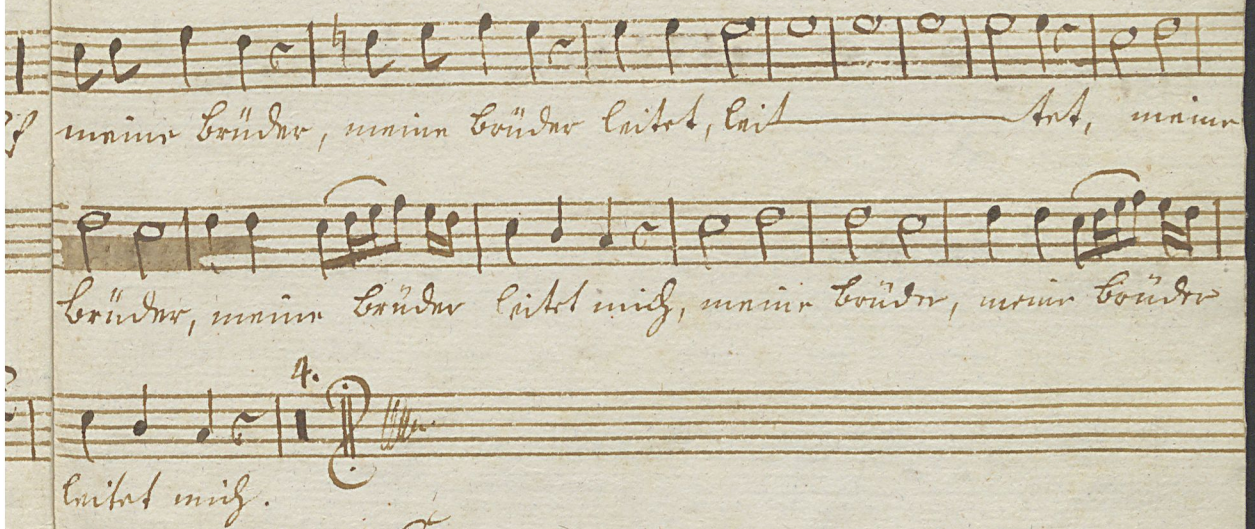 meine brüder, meine brüder leitet, leit tet, meine
brüder, meine brüder leitet mich, meine brüder, meine brüder
4.
leitet mich.